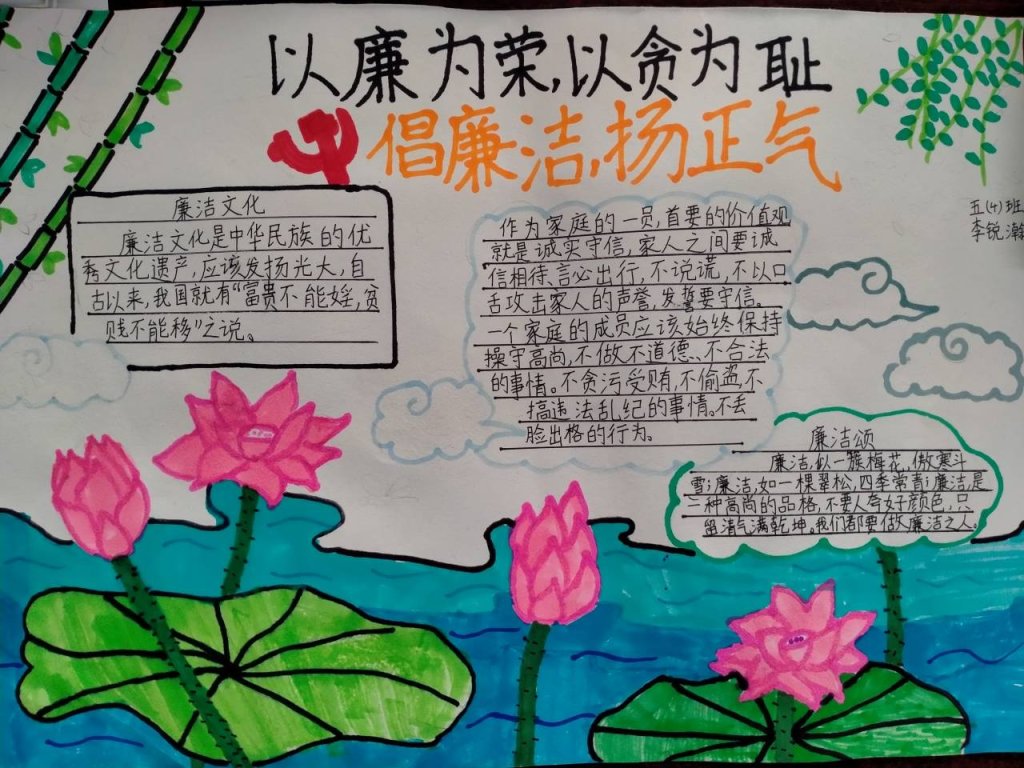 以廉为荣,以贪为耻
倡廉洁,扬正气
五(4)班
李锐瀚
廉洁文化
廉洁文化是中华民族的优
秀文化遗产,应该发扬光大,自
古以来,我国就有“富贵不能婬,贫
贱不能移”之说。
作为家庭的一员,首要的价值观
就是诚实守信,家人之间要诚
信相待、言必出行,不说谎,不以口
舌攻击家人的声誉,发誓要守信。
一个家庭的成员应该始终保持
操守高尚,不做不道德、不合法
的事情。不贪污受贿,不偷盗,不
搞违法乱纪的事情。不丢
脸出格的行为。
廉洁颂
廉洁,似一簇梅花,傲寒斗
雪;廉洁,如一棵翠松,四季常青;廉洁,是
一种高尚的品格,不要人夸好颜色,只
留清气满乾坤。我们都要做廉洁之人。